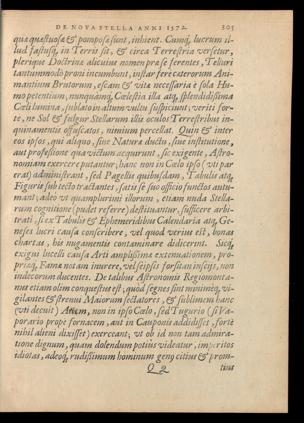 DE NOVA STELLA ANNI 1572. 305
quæ quæstuosa & pomposa sunt, inhient. Cumq́; lucrum illud
fastusq́;, in Terris sit, & circa Terrestria versetur,
plerique Doctrinæ alicuius nomen præ se ferentes, Telluri
tantummodo proni incumbunt, instar fere cæterorum Animantium
Brutorum, escam & vitæ necessaria è sola Humo
petentium, nunquamq́; Cælestia illa atq́; splendidissima
Cæli lumina, sublato in altum vultu suspiciunt; veriti forte,
ne Sol & fulgur Stellarum illis oculos Terrestribus inquinamentis
offuscatos, nimium percellat. Quin & inter
eos ipsos, qui aliquo, siue Naturæ ductu, siue institutione,
aut professione qua victum acquirunt, sic exigente, Astronomiam
exercere putantur; hanc non in Cælo ipso (vt par
erat) administrant, sed Pagellis quibusdam, Tabulis atq́;
Figuris subtecto tractantes, satis se suo officio functos autumant;
adeo vt quamplurimi illorum, etiam nuda Stellarum
cognitione (pudet referre) destituantur, sufficere arbitrati,
si ex Tabulis & Ephemeridibus Calendaria atq́; Geneses
lucri causa conscribere, vel quod verius est, bonas
chartas, his nugamentis contaminare didicerint. Sicq́;
exigui lucelli causa Arti amplissimæ extenuationem, propriæq́;
Famæ notam inurere, vel seipsis forsitan inscijs, non
indecorum ducentes. De talibus Astronomis Regiomontanus
etiam olim conquestus est, quod segnes sint minimeq́; vigilantes
& strenui Maiorum sectatores, & sublimem hanc
(vti decuit) Artem, non in ipso Cælo, sed Tugurio (si Vaporario
prope fornacem, aut in Cauponis addidisset, forte
nihil alieni dixisset) exerceant; vt ob id non tam admiratione
dignum, quam dolendum potius videatur, imperitos
idiotas, adeoq́; rudissimum hominum genq́ citius & prom-
Q q 2 tius